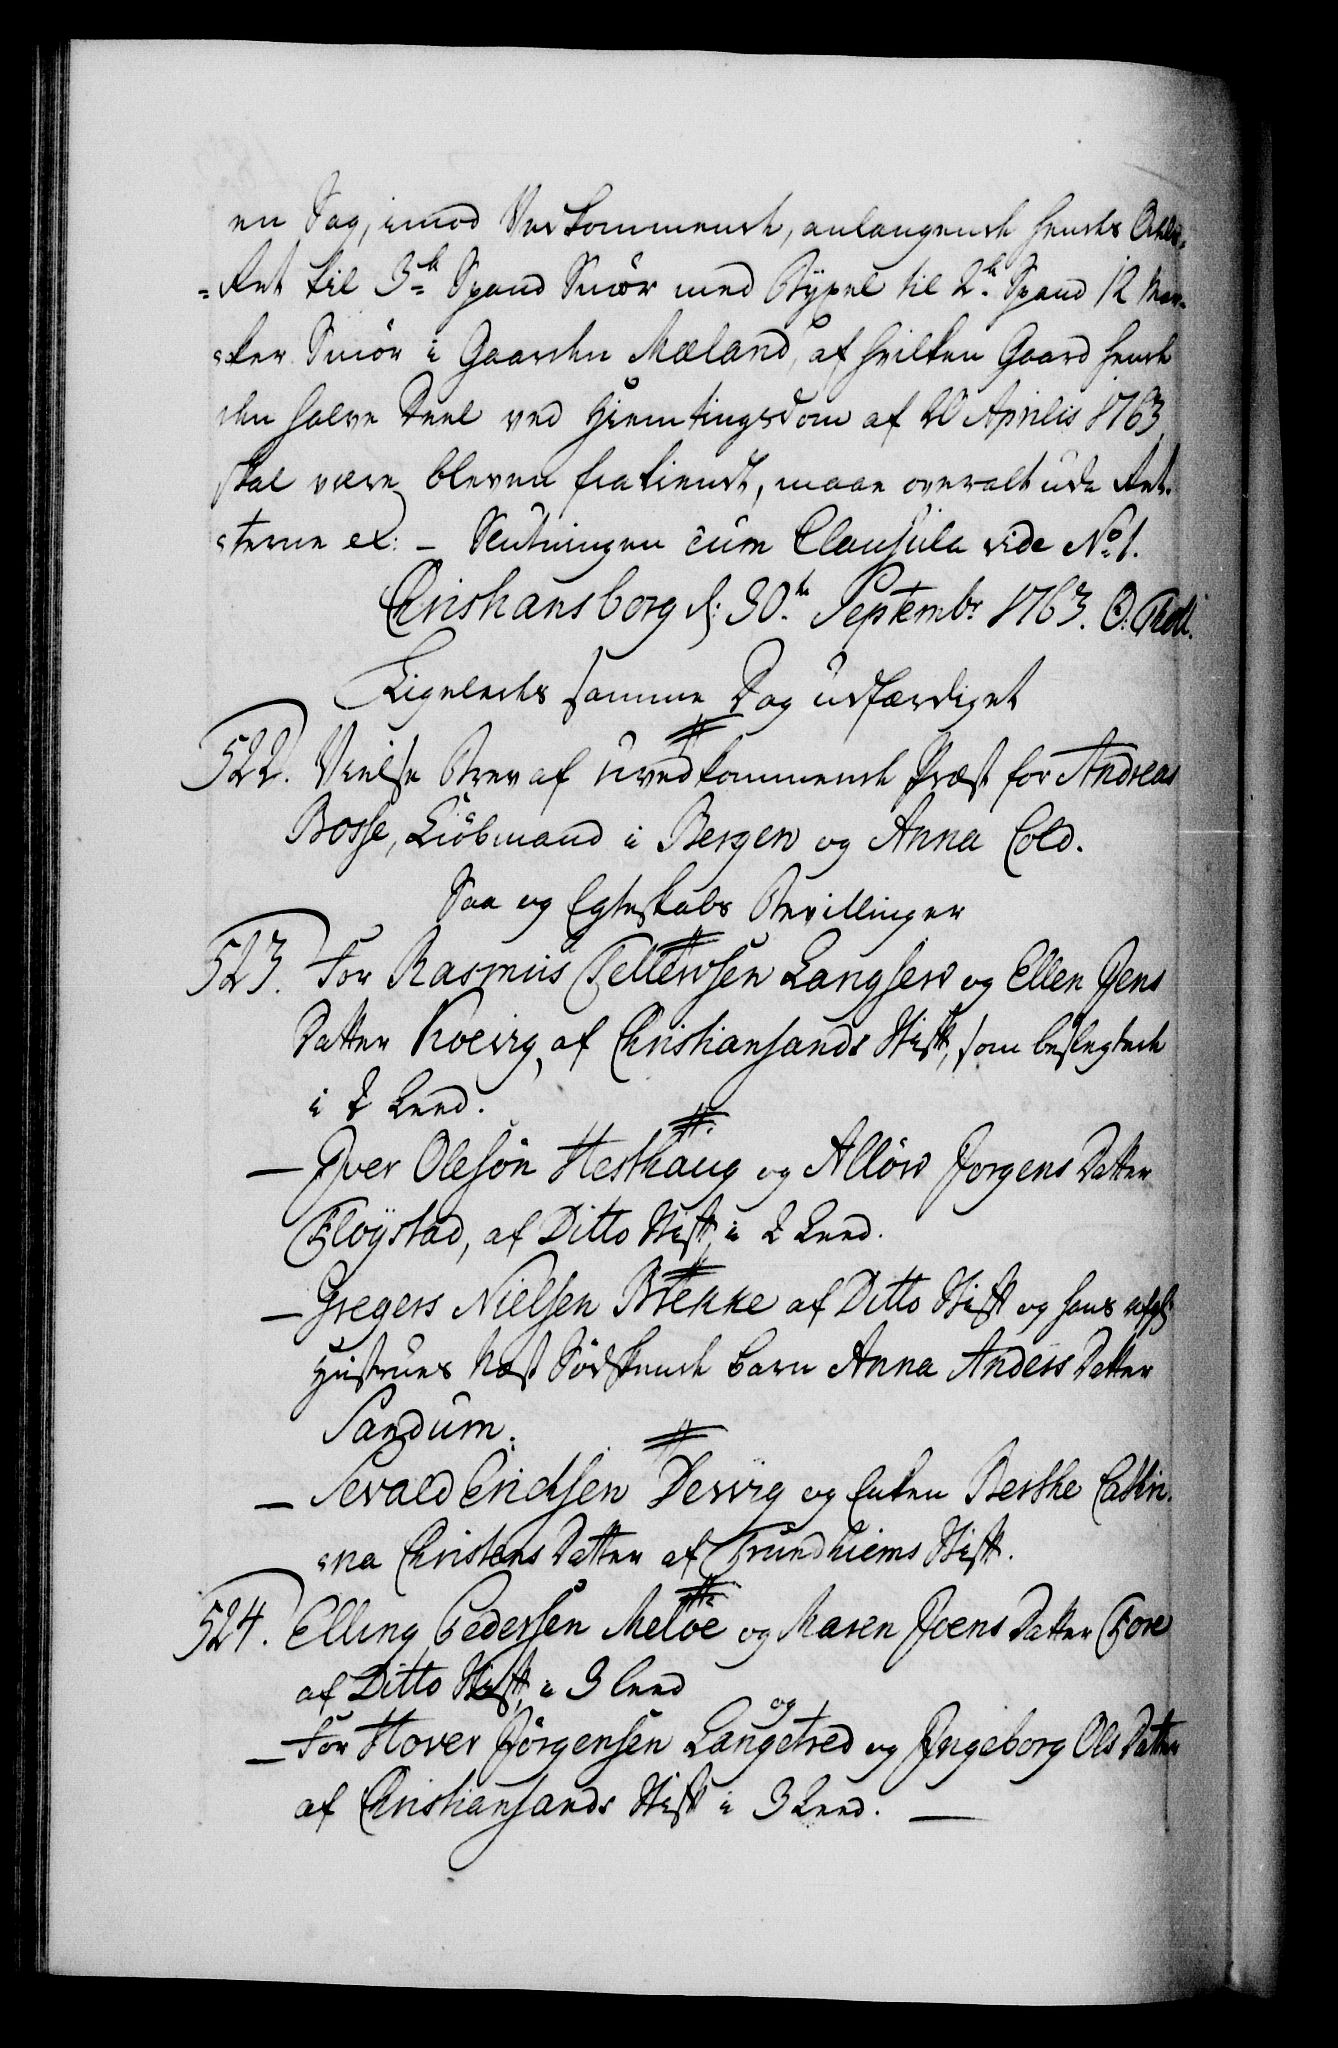 en Sag, imod Vedkommende, anlangende hendes Odels-
=Ret til 3de Spand Smör med Böxel til 2de Spand 12 Mar-
=ker Smör i Gaarden Mæland, af hvilken Gaard hende
den halve Deel ved Hiemtingsdom af 20 Aprilis 1763
skal være bleven frakiendt, maae overalt ude Ret-
=terne ex: – Slutningen cum Clausula vide No 1.
Christiansborg d: 30te Septembr 1763. O: Thott.
Ligeledes samme Dag udfærdiget
522. Vielse Brev af uvedkommende Præst for Andreas
Bosse, Kiöbmand i Bergen og Anna Cold.
Saa og Egteskabs Bevillinger
523. For Rasmus Tellevsen Langsew og Ellen Jens
Datter Roevig, af Christiansands Stift, som beslegtede
i 2 Leed.
– Iver Olesön Hesthaug og Allöw Jorgens Datter
Floÿstad, af Ditto Stift, i 2 Leed.
– Gregers Nielsen Brekke af Ditto Stift og hans afgl:
Hustrues Næst Södskende barn Anna Anders Datter
Sandum.
– Sevald Erichsen Dervig og Enken Berthe Cathri-
=na Christens Datter af Trundhiems Stift.
524. Elling Pedersen Melöe og Maren Joens Datter Fore
af Ditto Stift, i 3 Leed
og
– For Hover Jörgensen Langetved og Ingeborg Ols Datter
af Christiansands Stift i 3 Leed. –